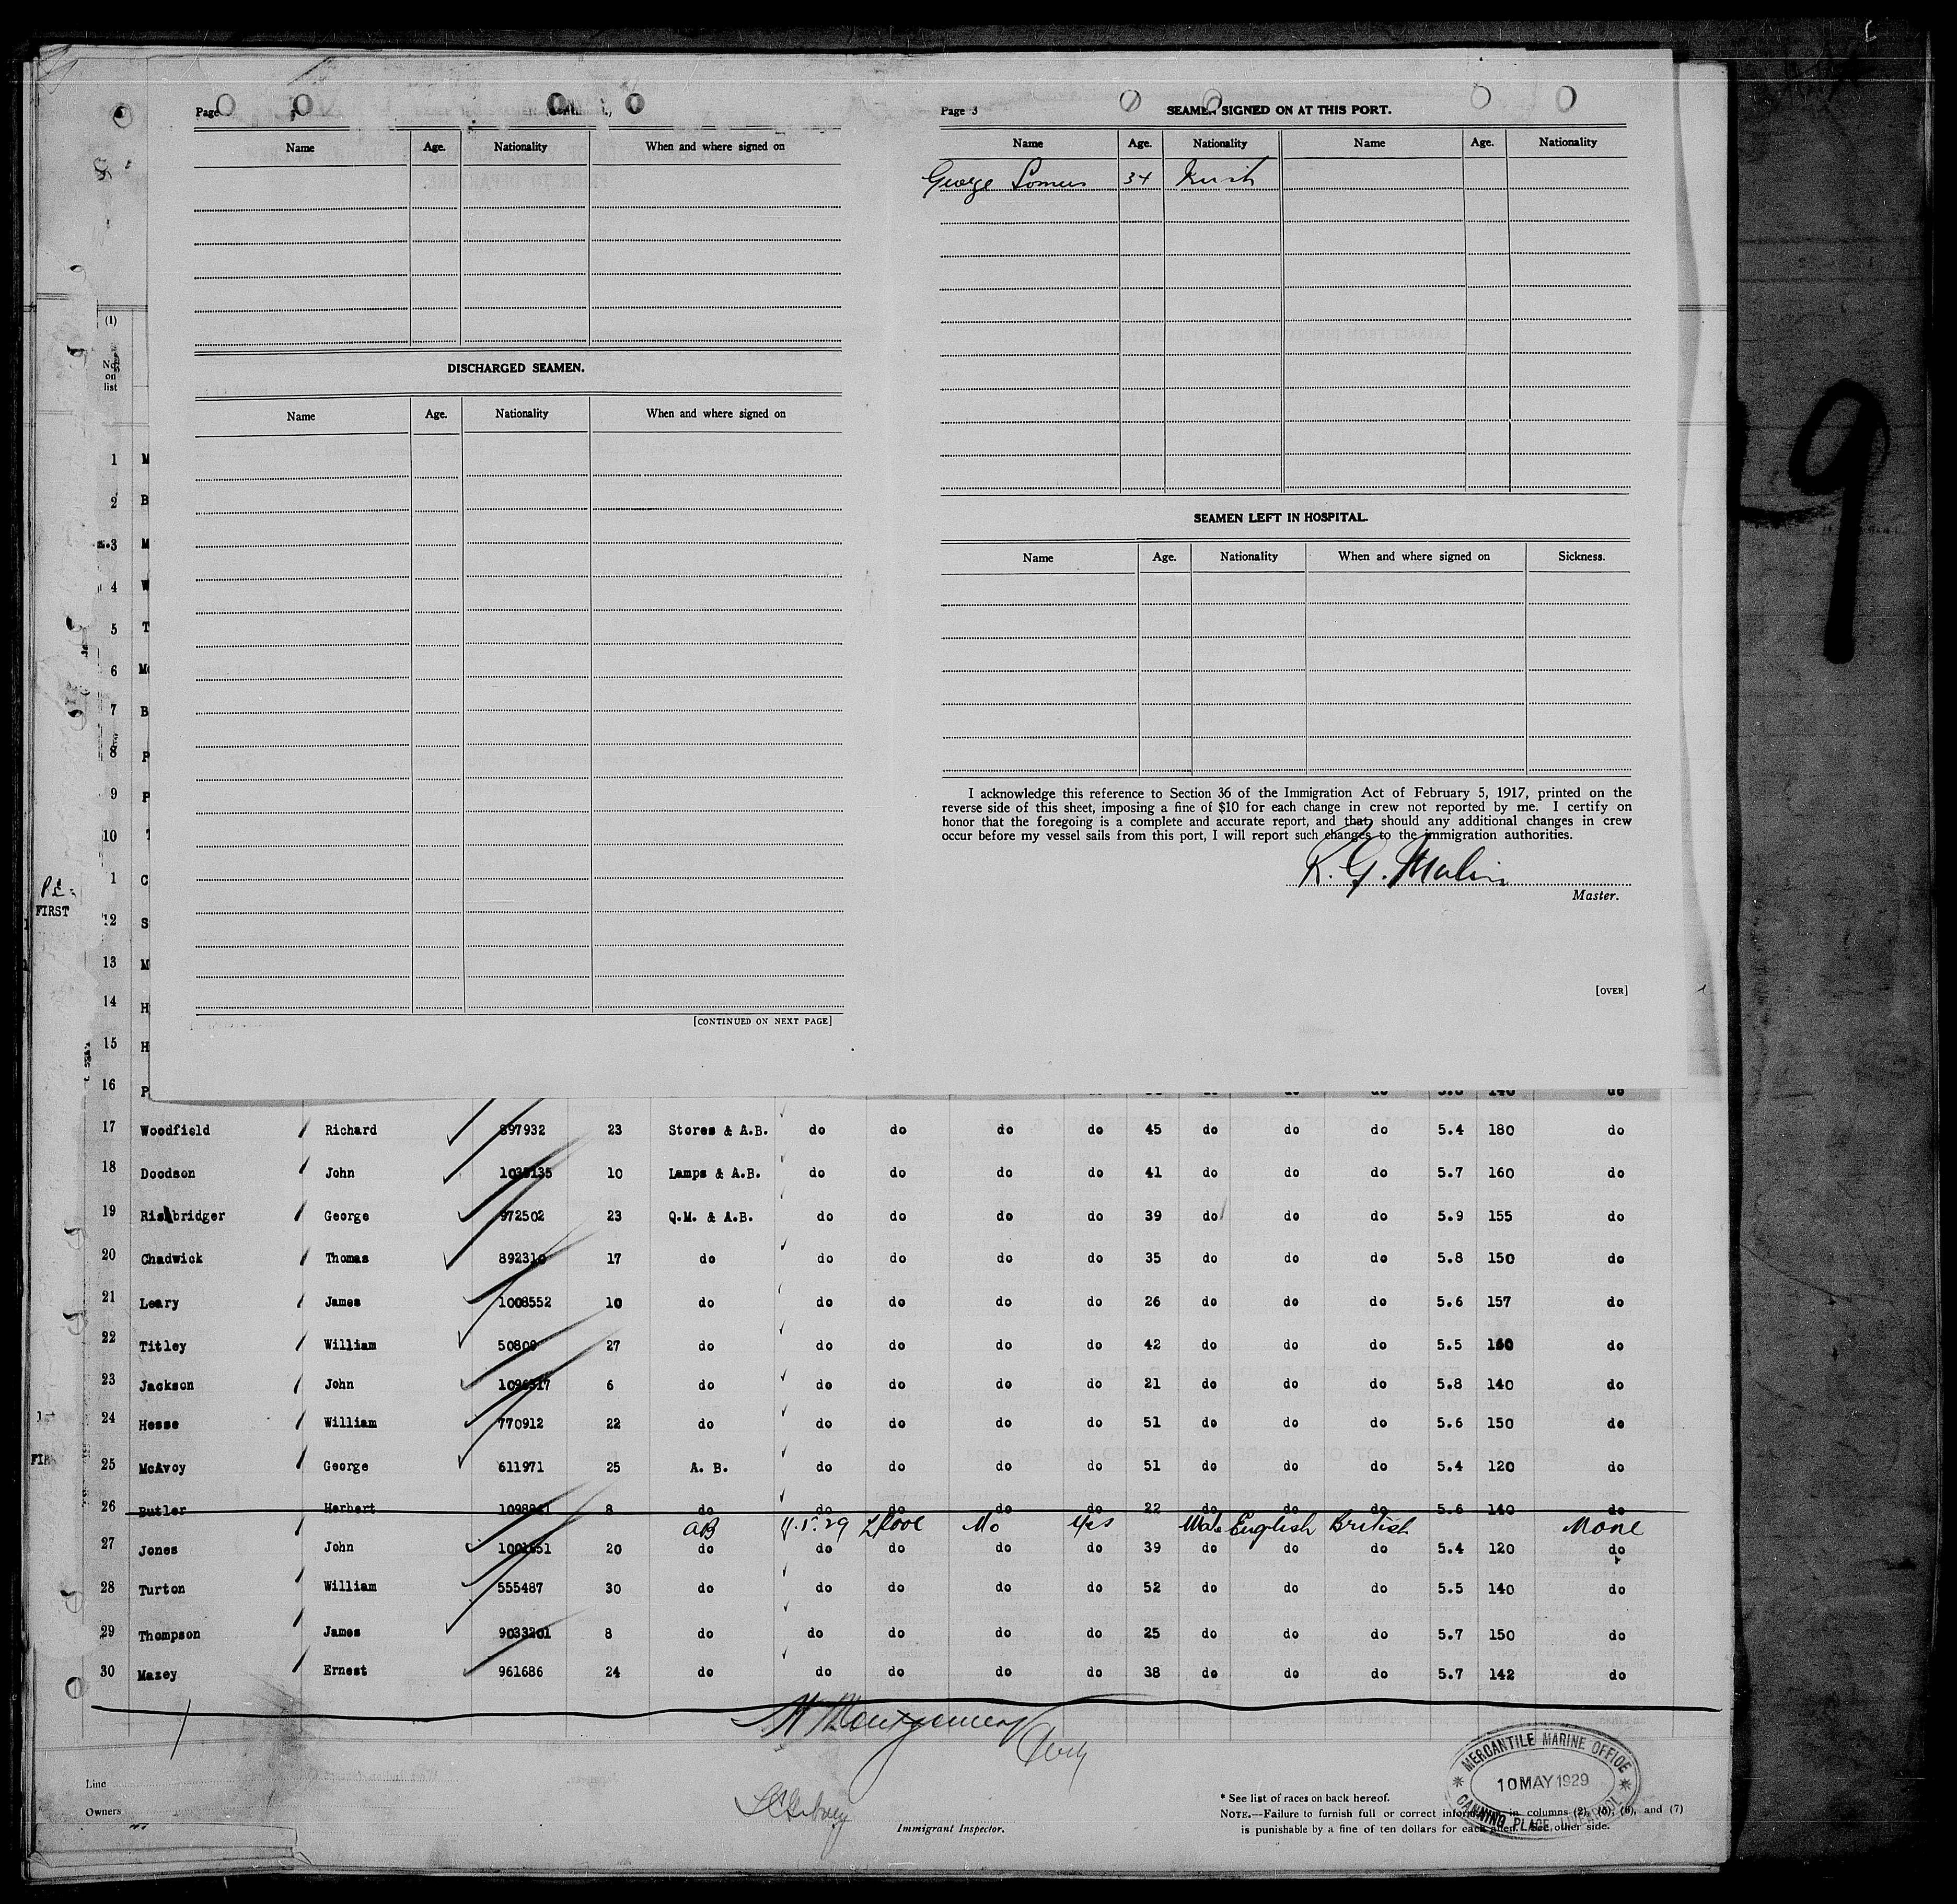 Page
Name Age. Nationality When and where signed on
DISCHARGED SEAMEN.
Name Age. Nationality When and where signed on
[CONTINUED ON NEXT PAGE]
Page 3 SEAMEN SIGNED ON AT THIS PORT.
Name Age. Nationality Name Age. Nationality
George Somers 34 Irish
SEAMEN LEFT IN HOSPITAL.
Name Age. Nationality When and where signed on Sickness.
I acknowledge this reference to Section 36 of the Immigration Act of February 5, 1917, printed on the
reverse side of this sheet, imposing a fine of $10 for each change in crew not reported by me. I certify on
honor that the foregoing is a complete and accurate report, and that should any additional changes in crew
occur before my vessel sails from this port, I will report such changes to the immigration authorities.
R. G. Malin
Master.
[OVER]
(1)
No. on list
1 M
2 B
3 M
4 W
5 T
6 Mc
7 B
8 P
9 P
10 T
1 C
FIRST
12 S
13 M
14 H
15 H
16 P do do do do 5.8 140 do
17 Woodfield Richard 897932 23 Stores & A.B. do do do do 45 do do do 5.4 180 do
18 Doodson John 1035135 10 Lamps & A.B. do do do do 41 do do do 5.7 160 do
19 Risbridger George 972502 23 Q.M. & A.B. do do do do 39 do do do 5.9 155 do
20 Chadwick Thomas 892310 17 do do do do do 35 do do do 5.8 150 do
21 Leary James 1008552 10 do do do do do 26 do do do 5.6 157 do
22 Titley William 50809 27 do do do do do 42 do do do 5.5 160 do
23 Jackson John 1096317 6 do do do do do 21 do do do 5.8 140 do
24 Hesse William 770912 22 do do do do do 51 do do do 5.6 150 do
25 McAvoy George 611971 25 A. B. do do do do 51 do do do 5.4 120 do
26 Butler Herbert 8 do do do do do 22 do do do 5.6 140 do
AB L'pool No Yes Male English British None
27 Jones John 20 do do do do do 39 do do do 5.4 120 do
28 Turton William 555487 30 do do do do do 52 do do do 5.5 140 do
29 Thompson James 9033201 8 do do do do do 25 do do do 5.7 150 do
30 Maxey Ernest 961686 24 do do do do do 38 do do do 5.7 142 do
Montgomery
Line
Owners
Immigrant Inspector.
* See list of races on back hereof.
NOTE.—Failure to furnish full or correct information in columns (2), (5), (6), and (7)
is punishable by a fine of ten dollars for each alien. See other side.
MERCANTILE MARINE OFFICE
10 MAY 1929
CANNING PLACE, LIVERPOOL
9